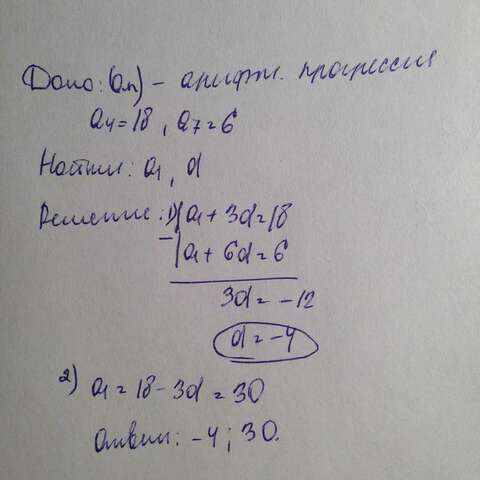 Дано: (an) - арифм. прогрессия
a4 = 18, a7 = 6
Найти: a1, d
Решение: 1) a1 + 3d = 18
- a1 + 6d = 6
3d = -12
d = -4
2) a1 = 18 - 3d = 30
Ответ: -4; 30.